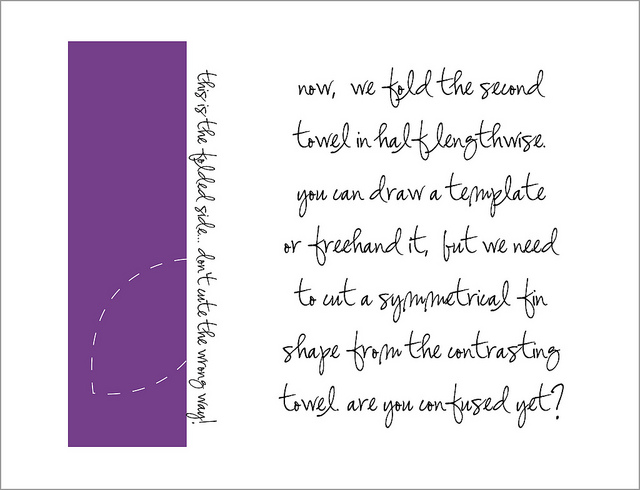 this is the folded side... don't cute the wrong way!
now, we fold the second
towel in half lengthwise.
you can draw a template
or freehand it, but we need
to cut a symmetrical fin
shape from the contrasting
towel. are you confused yet?